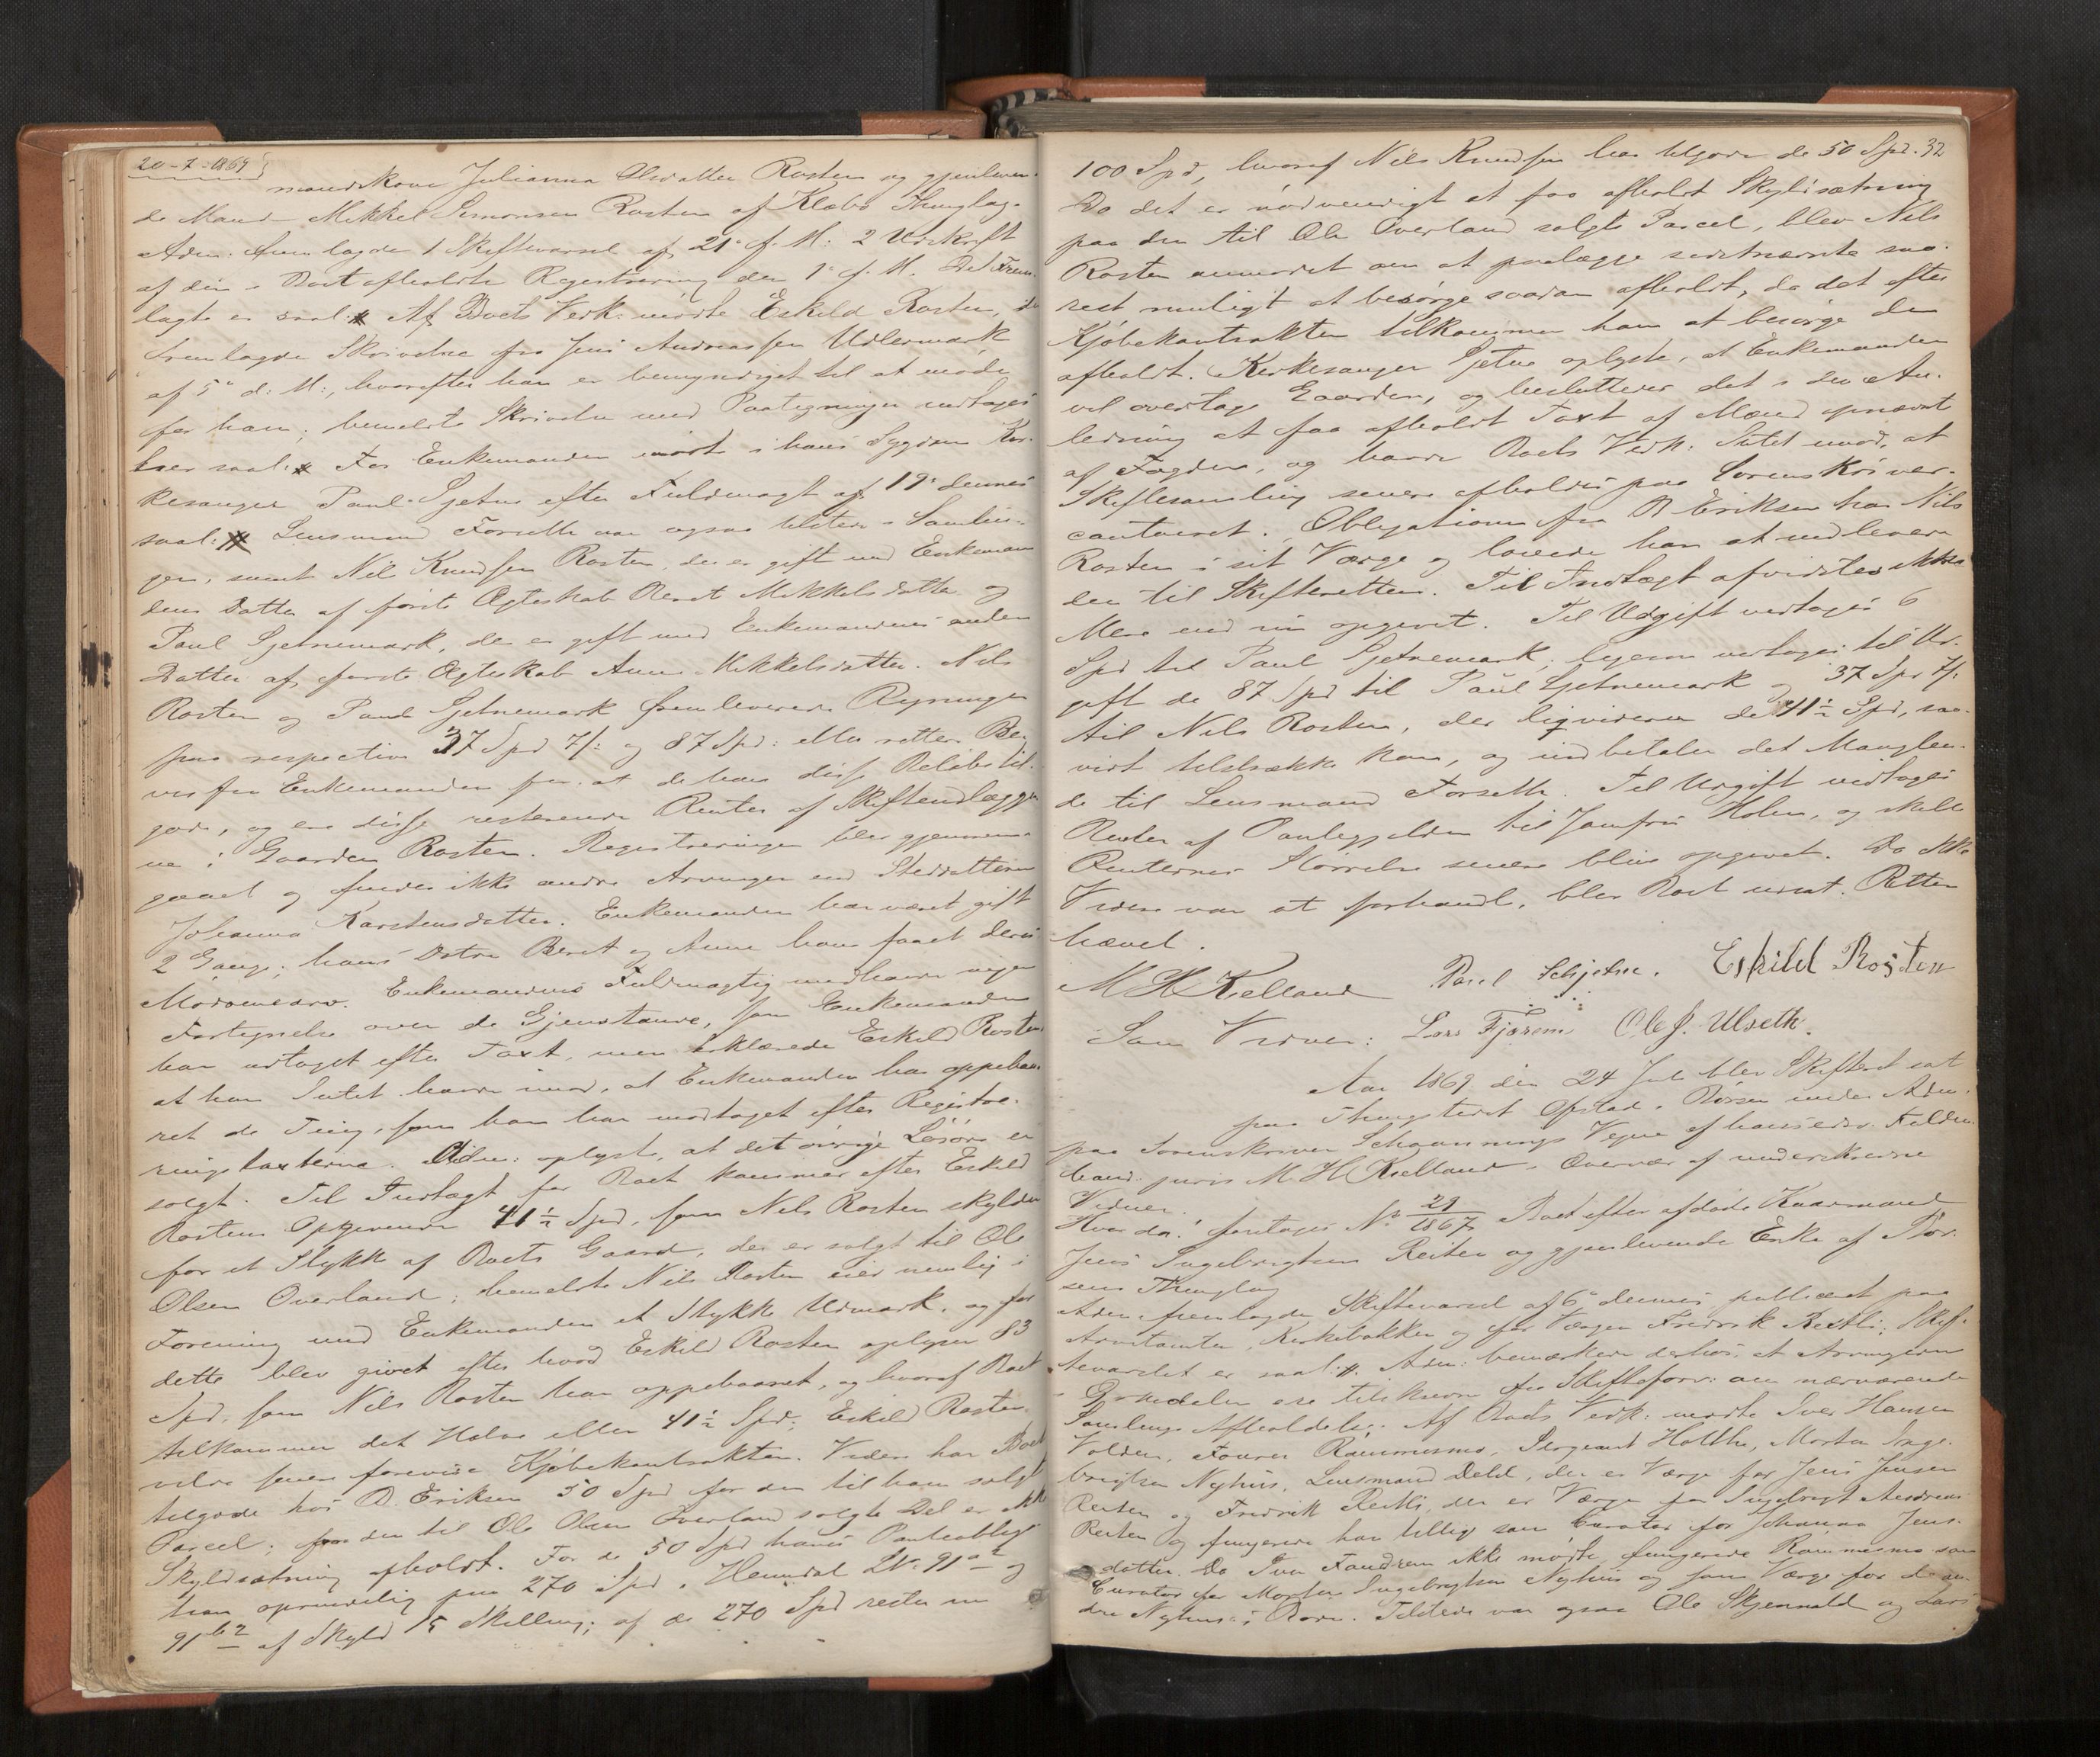 20-7-1869
mandskone Julianna Olsdatter Rosten og gjenleven-
de Mand Mikkel Simonsen Rosten af Klæbo Thinglag.
Adm. fremlagde 1 Skiftevarsel af 21de f. M: 2 Udskrift
af den i Boet afholdte Registrering den 1e f. M. Det Frem-
lagte er saal: # Af Boets Vedk: mødte Eskild Rosten, der
fremlagde Skrivelse fra Jens Andreassen Udlermark
af 5te d: M:, hvorefter han er bemyndiget til at møde
for ham; bemeldte Skrivelse med Paategninger modtages
saal: # For Enkemanden mødte i hans Sygdom Kir-
kesanger Paul Gjetne efter Fuldmagt af 19de dennes
saal: # Lensmand Forseth var ogsaa tilstede i Samlin-
gen, samt Nils Knudsen Rosten, der er gift med Enkeman-
dens Datter af første Ægteskab Beret Mikkelsdatter og
Paul Gjetnemark, der er gift med Enkemandens anden
Datter af første Ægteskab Anne Mikkelsdatter. Nils
Rosten og Paul Gjetnemark fremleverede Regninger
paa respective 37 Spd 7/: og 87 Spd: eller rettere Be-
vis fra Enkemanden for at de have disse Beløb til-
gode, og ere disse resterende Renter af Skifteudlæggene
i Gaarden Rosten. Registreringen blev gjennem-
gaaet og findes ikke andre Arvinger end Steddatteren
Johanna Karstensdatter. Enkemanden har været gift
2 Gange; hans Døtre Beret og Anne have faaet deres
Mødrenearv. Enkemandens Fuldmægtig medhavde ingen
Fortegnelse over de Gjenstande, som Enkemanden
har udtaget efter Taxt, men erklærede Eskild Rosten
at han Intet havde imod, at Enkemanden har oppebaa-
ret de Ting, som han har modtaget efter Registre-
ringstaxterne. Adm: oplyste, at det øvrige Løsøre er
solgt. Til Indtægt for Boet kommer efter Eskild
Rostens Opgivende 41½ Spd, som Nils Rosten skylder
for et Stykke af Boets Gaard, der er solgt til Ole
Olsen Overland; bemeldte Nils Rosten eier nemlig i
Forening med Enkemanden et Stykke Udmark, og for
dette blev givet efter hvad Eskild Rosten oplyser 83
Spd, som Nils Rosten har oppebaaret, og hvoraf Boet
tilkommer det Halve eller 41½ Spd. Eskild Rosten
vilde senere forevise Kjøbekontrakten. Videre har Boet
tilgode hos B. Eriksen 50 Spd for den til ham solgte
Parcel; for den til Ole Olsen Overland solgte Del er ikke
Skyldsætning afholdt. For de 50 Spd haves Panteobligation
oprindelig paa 270 Spd i Heimdal LN. 91a2 og
91b2 af Skyld 15 Skilling; af de 270 Spd rester nu
32
100 Spd, hvoraf Nils Knudsen har tilgode de 50 Spd.
Da det er nødvendigt at faa afholdt Skyldsætning
paa den til Ole Overland solgte Parcel, blev Nils
Rosten anmodet om at paalægge sidstnævnte saa-
vidt muligt at besørge saadan afholdt, da det efter
Kjøbekontrakten tilkommer ham at besørge den
afholdt. Kirkesanger Gjetne oplyste, at Enkemanden
vil overtage Gaarden, og besluttedes det i den An-
ledning at faa afholdt Taxt af Mænd opnævnt
af Fogden, og havde Boets Vedk: Intet imod, at
Skiftesamling senere afholdes paa Sorenskriver-
contoret. Obligationen fra B Eriksen har Nils
Rosten i sit Værge og lovede han at indlevere
den til Skifteretten. Til Indtægt afvidstes ikke
Mere end nu opgivet. Til Udgift vedtages 6
Spd til Paul Gjetnemark, ligesom vedtages til Ud-
gift de 87 Spd til Paul Gjetnemark og 37 Spd 7/:
til Nils Rosten, der liqviderer de 41½ Spd, saa-
vidt tilstrække kan, og indbetaler det Manglen-
de til Lensmand Forseth. Til Udgift vedtages
Renter af Pantegjælden til Jomfru Holm, og skulle
Renternes Størrelse senere blive opgivet. Da Ikke
Videre var at forhandl. blev Boet udsat. Retten
hævet.
M H Kielland Paul Schjetne. Eskild Rosten
Som Vidner: Lars Fjærem Ole J. Ulseth.
Aar 1869 den 24 Juli blev Skifteret sat
paa Thingstedet Opstad i Børsen under Adm.
paa Sorenskriver Schgannings Vegne af hans edsv. Fuldm.
cand: juris M. H Kielland i Overvær af underskrevne
Vidner.
Hvor da! foretages No 29/1867. Boet efter afdøde Kaarmand
Jens Ingebrigtsen Reiten og gjenlevende Enke af Bør-
sens Thinglag
Adm: fremlagde Skiftevarsel af 6te dennes publiceret paa
Kirkebakken og for Værgen Fredrik Reitli; Skif-
tevarslet er saal: #. Adm: bemærkede derhos, at Arvingerne
i Orkedalen ere tilskrevne fra Skifteforv: om nærværende
Samlings Afholdelse. Af Boets Vedk: mødte Iver Hansen
Volden, Sergeant Holthe, Morten Inge-
brigtsen Nyhus, Lensmand Dahl, der er Værge for Jens Jensen
Reiten og Fredrik Reitli, der er Værge for Ingebrigt Andreas
Reiten og fungerede han tillige som Curator for Johanna Jens-
datter. Da Iver Fandrem ikke mødte, fungerede Rømmesmo som
Curator for Morten Ingebrigtsen Nyhus og som Værge for de an-
dre Nyhus's Børn. Tilstede var ogsaa Ole Skjenald og Lars